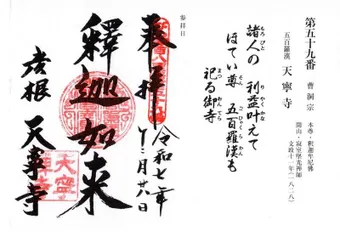 第五十九番 曹洞宗
五百羅漢 天寧寺
本尊・釈迦牟尼佛
開山・寂室堅光禅師
文政十一年(一八二八)
諸人の 利霊叶えて
ほてい尊 五百羅漢も
祀る御寺
参拝日
奉拝 令和七年
二月廿八日
釋迦如来
彦根 天寧寺